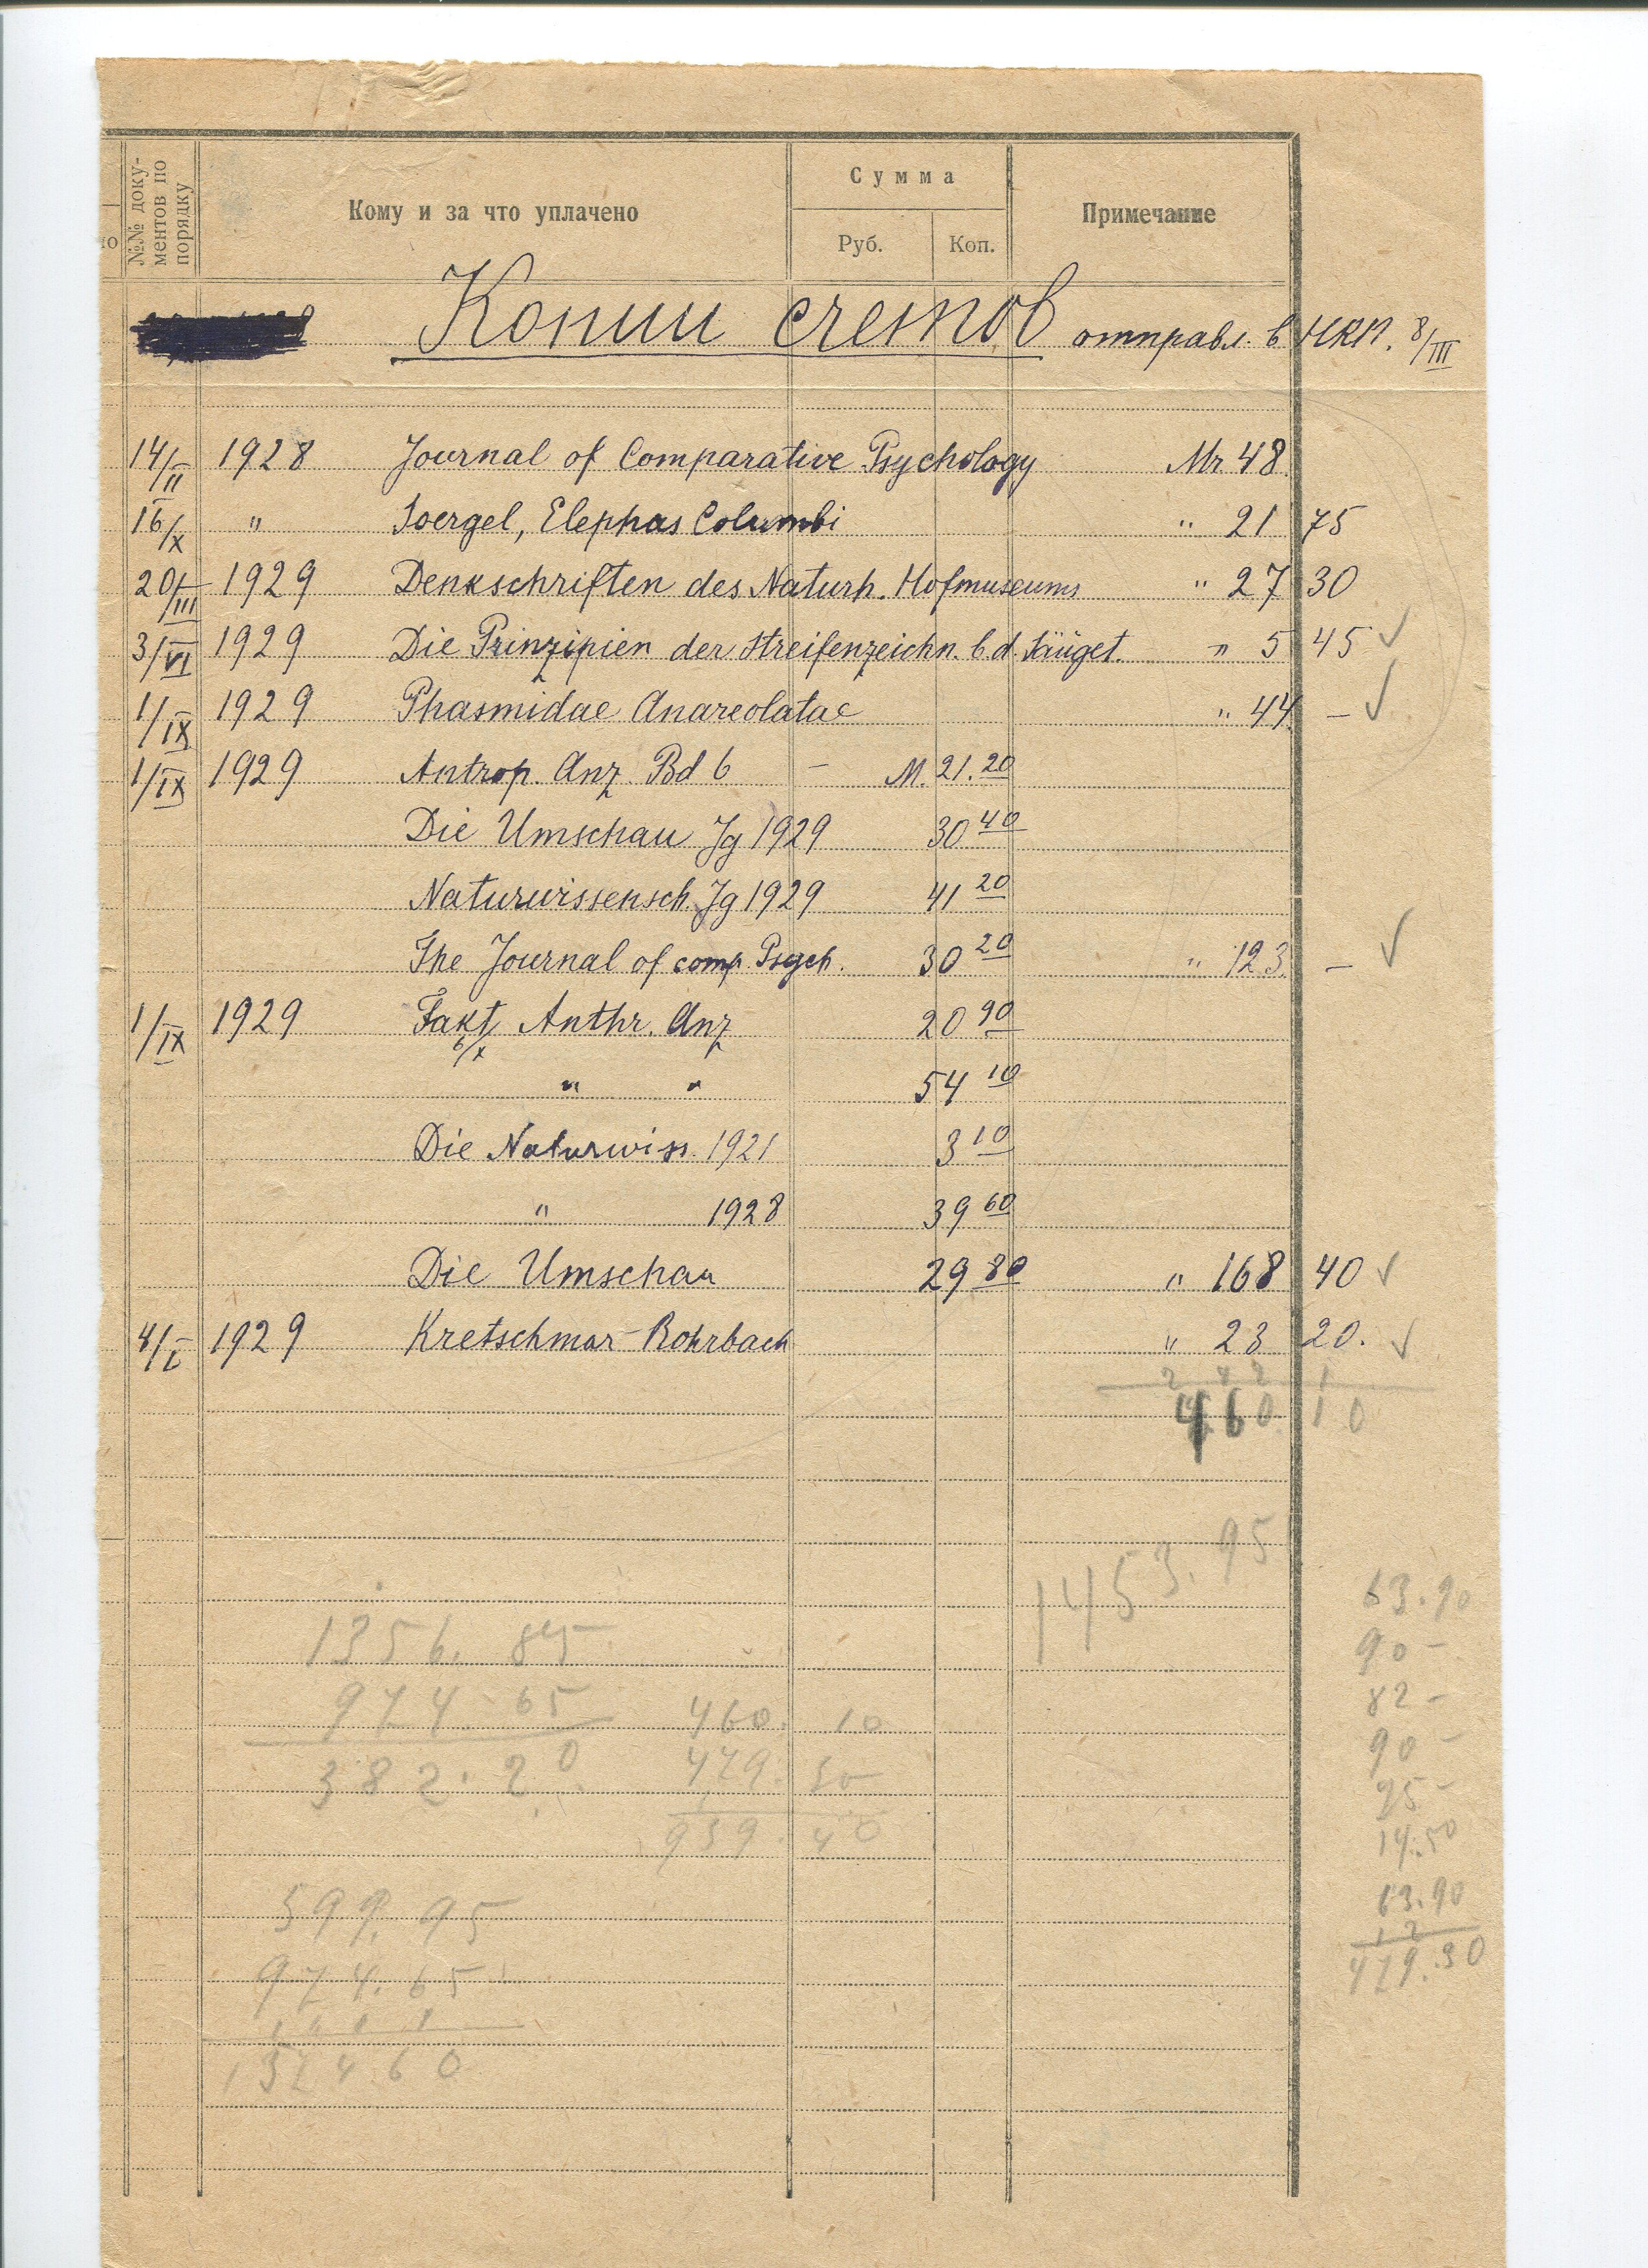 №№ доку-
ментов по
порядку
Кому и за что уплачено
Сумма
Руб. Коп.
Примечание
Копии счетов отправл. в НКП. 8/III
14/II 1928 Journal of Comparative Psychology Mr 48
16/X " Soergel, Elephas Columbi " 21 75
20/III 1929 Denkschriften des Naturh. Hofmuseums " 27 30
3/VI 1929 Die Prinzipien der Streifenzeichn. b. d. Säuget. " 5 45 ✓
1/IX 1929 Phasmidae Anareolatae " 44 – ✓
1/IX 1929 Antrop. Anz. Bd 6 – M. 21.20
Die Umschau Jg 1929 30 40
Naturwissensch. Jg 1929 41 20
The Journal of comp. Psych. 30 20 " 123 – ✓
1/IX 1929 Fakt. Anthr. Anz 20 90
6/X
" " 54 10
Die Naturwiss. 1921 3 10
" 1928 39 60
Die Umschau 29 80 " 168 40 ✓
1929 Kretschmar-Rohrbach " 23 20. ✓
2 2 1
460 10
1453.95
63.90
1356.85
90 –
974.65
82 –
460. 10
90 –
382.20
479. 30
14.50
939. 40
63.90
599.95
479.30
974.65
1574 60